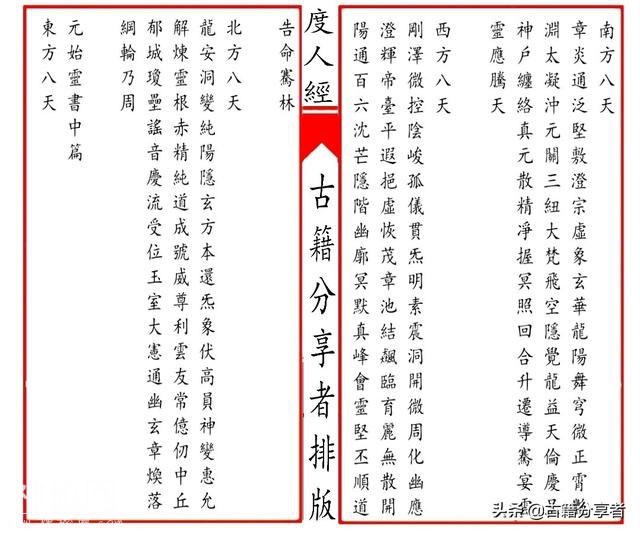 南方八天
章炎通泛堅敷澄宗虛象玄華龍陽舞穹微正霄
淵太凝沖元關三紐大梵飛空隱覺龍益天倫慶
神戶纏絡真元散精凈握冥照回合升遷導騫宴
靈應騰天
西方八天
剛澤微控陰峻孤儀貫炁明素震洞開微周化幽應
澄輝帝臺平遐挹虛恢茂章池結飆臨育麗無散開
陽通百六沈芒隱階幽廓冥默真峰會靈堅丕順道
度人經
古籍分享者排版
告命騫林
北方八天
龍安洞變純陽隱玄方本還炁象伏高員神變惠允
解煉靈根赤精純道成號威尊利雲友常億仞中丘
郁城瓊疊謠音慶流受位玉室大憲通幽玄章煥落
綱輪乃周
元始靈書中篇
東方八天
头条@古籍分享者